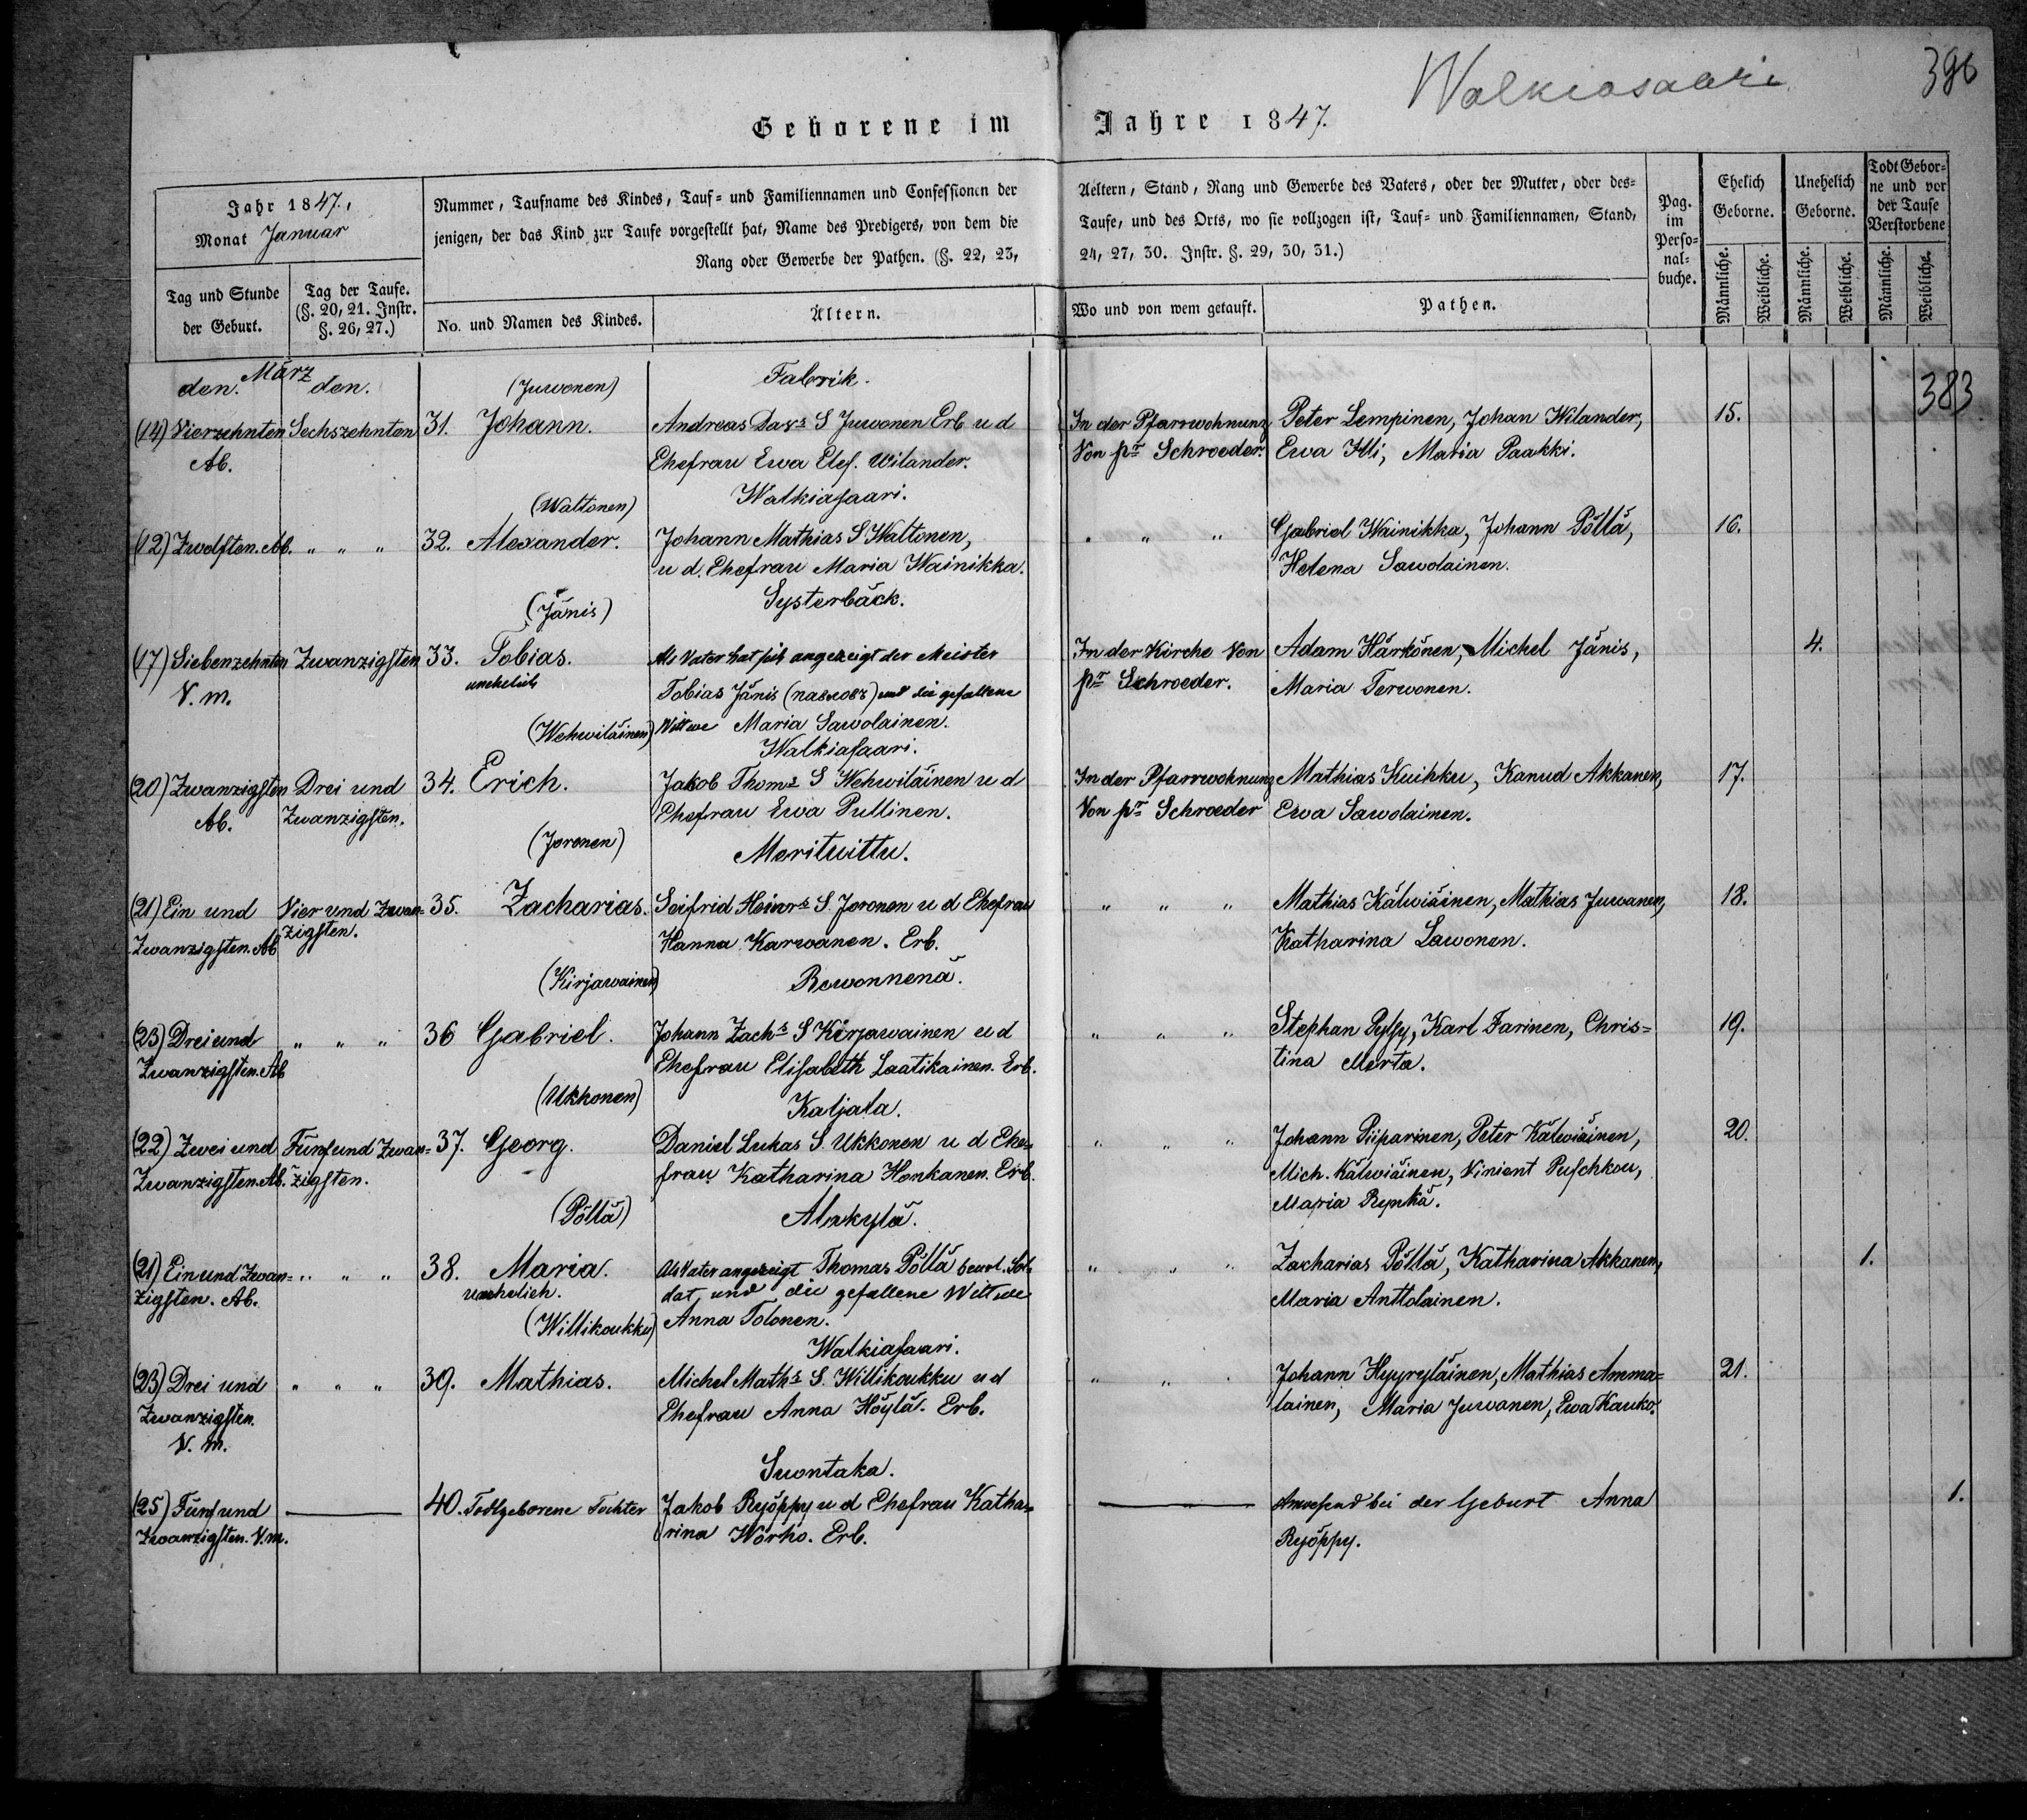 Walkiasaari
396
Geborene im Jahre 1847.
Jahr 1847.,
Monat Januar
Nummer, Taufname des Kindes, Tauf= und Familiennamen und Confessionen der
jenigen, der das Kind zur Taufe vorgestellt hat, Name des Predigers, von dem die
Rang oder Gewerbe der Pathen. (§. 22, 23,
Aeltern, Stand, Rang und Gewerbe des Vaters, oder der Mutter, oder des=
Taufe, und des Orts, wo sie vollzogen ist, Tauf= und Familiennamen, Stand,
24, 27, 30. Instr. §. 29, 30, 31.)
Pag.
im
Perso=
nal=
buche.
Ehelich
Geborne.
Unehelich
Geborne.
Todt Gebor=
ne und vor
der Taufe
Verstorbene
Tag und Stunde
der Geburt.
Tag der Taufe.
(§. 20, 21. Instr.
§. 26, 27.)
No. und Namen des Kindes.
Ältern.
Wo und von wem getauft.
Pathen.
Männliche.
Weibliche.
Männliche.
Weibliche.
Männliche.
Weibliche.
383
März
den. den.
(Juwonen)
Fabrik.
(14) Vierzehnten
Ab.
Sechszehnten
31. Johann.
Andreas Davs S Juwonen Erb u d
Ehefrau Ewa Elef. Wilander.
In der Pfarrwohnung
Von pr Schroeder.
Peter Lempinen, Johan Wilander,
Ewa Illi, Maria Paakki.
15.
(Waltonen)
Walkiasaari.
(12) Zwolften. Ab.
" " "
32. Alexander.
Johann Mathias S Waltonen,
u d. Ehefrau Maria Wainikka.
" " "
Gabriel Wainikka, Johann Pöllä,
Helena Sawolainen.
16.
(Jänis)
Systerbäck.
(17) Siebenzehnten
V. m.
Zwanzigsten
33. Tobias.
unehelich
Als Vater hat sich angezeigt der Meister
Tobias Jänis (Павловъ) und die gefallene
Wittwe Maria Sawolainen.
In der Kirche Von
pr Schroeder.
Adam Härkönen, Michel Jänis,
Maria Terwonen.
4.
(Wehwiläinen)
Walkiasaari.
(20) Zwanzigsten
Ab.
Drei und
Zwanzigsten.
34. Erich.
Jakob Thoms S Wehwiläinen u d
Ehefrau Ewa Pullinen.
In der Pfarrwohnung
Von pr Schroeder
Mathias Kuihku, Kanud Akkanen,
Ewa Sawolainen.
17.
(Joronen)
Merituittu.
(21) Ein und
Zwanzigsten. Ab
Vier und Zwan=
zigsten.
35. Zacharias.
Seifrid Heinrs S. Joronen u d Ehefrau
Hanna Karwanen. Erb.
" " "
Mathias Kälwiäinen, Mathias Juwanen,
Katharina Lawonen.
18.
(Kirjawainen)
Rewonnenä.
(23) Drei und
Zwanzigsten. Ab
" " "
36 Gabriel.
Johann Zachs S Kirjawainen u d
Ehefrau Elisabeth Laatikainen. Erb.
" " "
Stephan Pylsy, Karl Farinen, Chris=
tina Merta.
19.
(Ukkonen)
Kaljala.
(22) Zwei und
Zwanzigsten. Ab.
Fünf und Zwan=
zigsten.
37. Georg.
Daniel Lukas S. Ukkonen u d Ehe=
frau Katharina Honkanen. Erb.
" " "
Johann Piiparinen, Peter Kälwiäinen,
Mich. Kälwiäinen, Vinient Puschkou,
Maria Rynkä.
20.
(Pöllä)
Alakylä.
(21) Ein und Zwan=
zigsten. Ab.
" " "
38. Maria.
unehelich.
Als Vater angezeigt Thomas Pöllä beurl. Sol=
dat, und die gefallene Wittwe
Anna Tolonen.
" " "
Zacharias Pöllä, Katharina Akkanen,
Maria Anttolainen.
1.
(Willikoukku)
Walkiasaari.
(23) Drei und
Zwanzigsten.
V. m.
" " "
39. Mathias.
Michel Maths S. Willikoukku u d
Ehefrau Anna Höylä. Erb.
" " "
Johann Hyyryläinen, Mathias Amma=
lainen, Maria Juwanen, Ewa Kauko.
21.
Suontaka.
(25) Fünf und
Zwanzigsten. V. m.
40. Todtgeborene Tochter
Jakob Ryöppy u d Ehefrau Katha=
rina Wörho. Erb.
Anwesend bei der Geburt Anna
Ryöppy.
1.